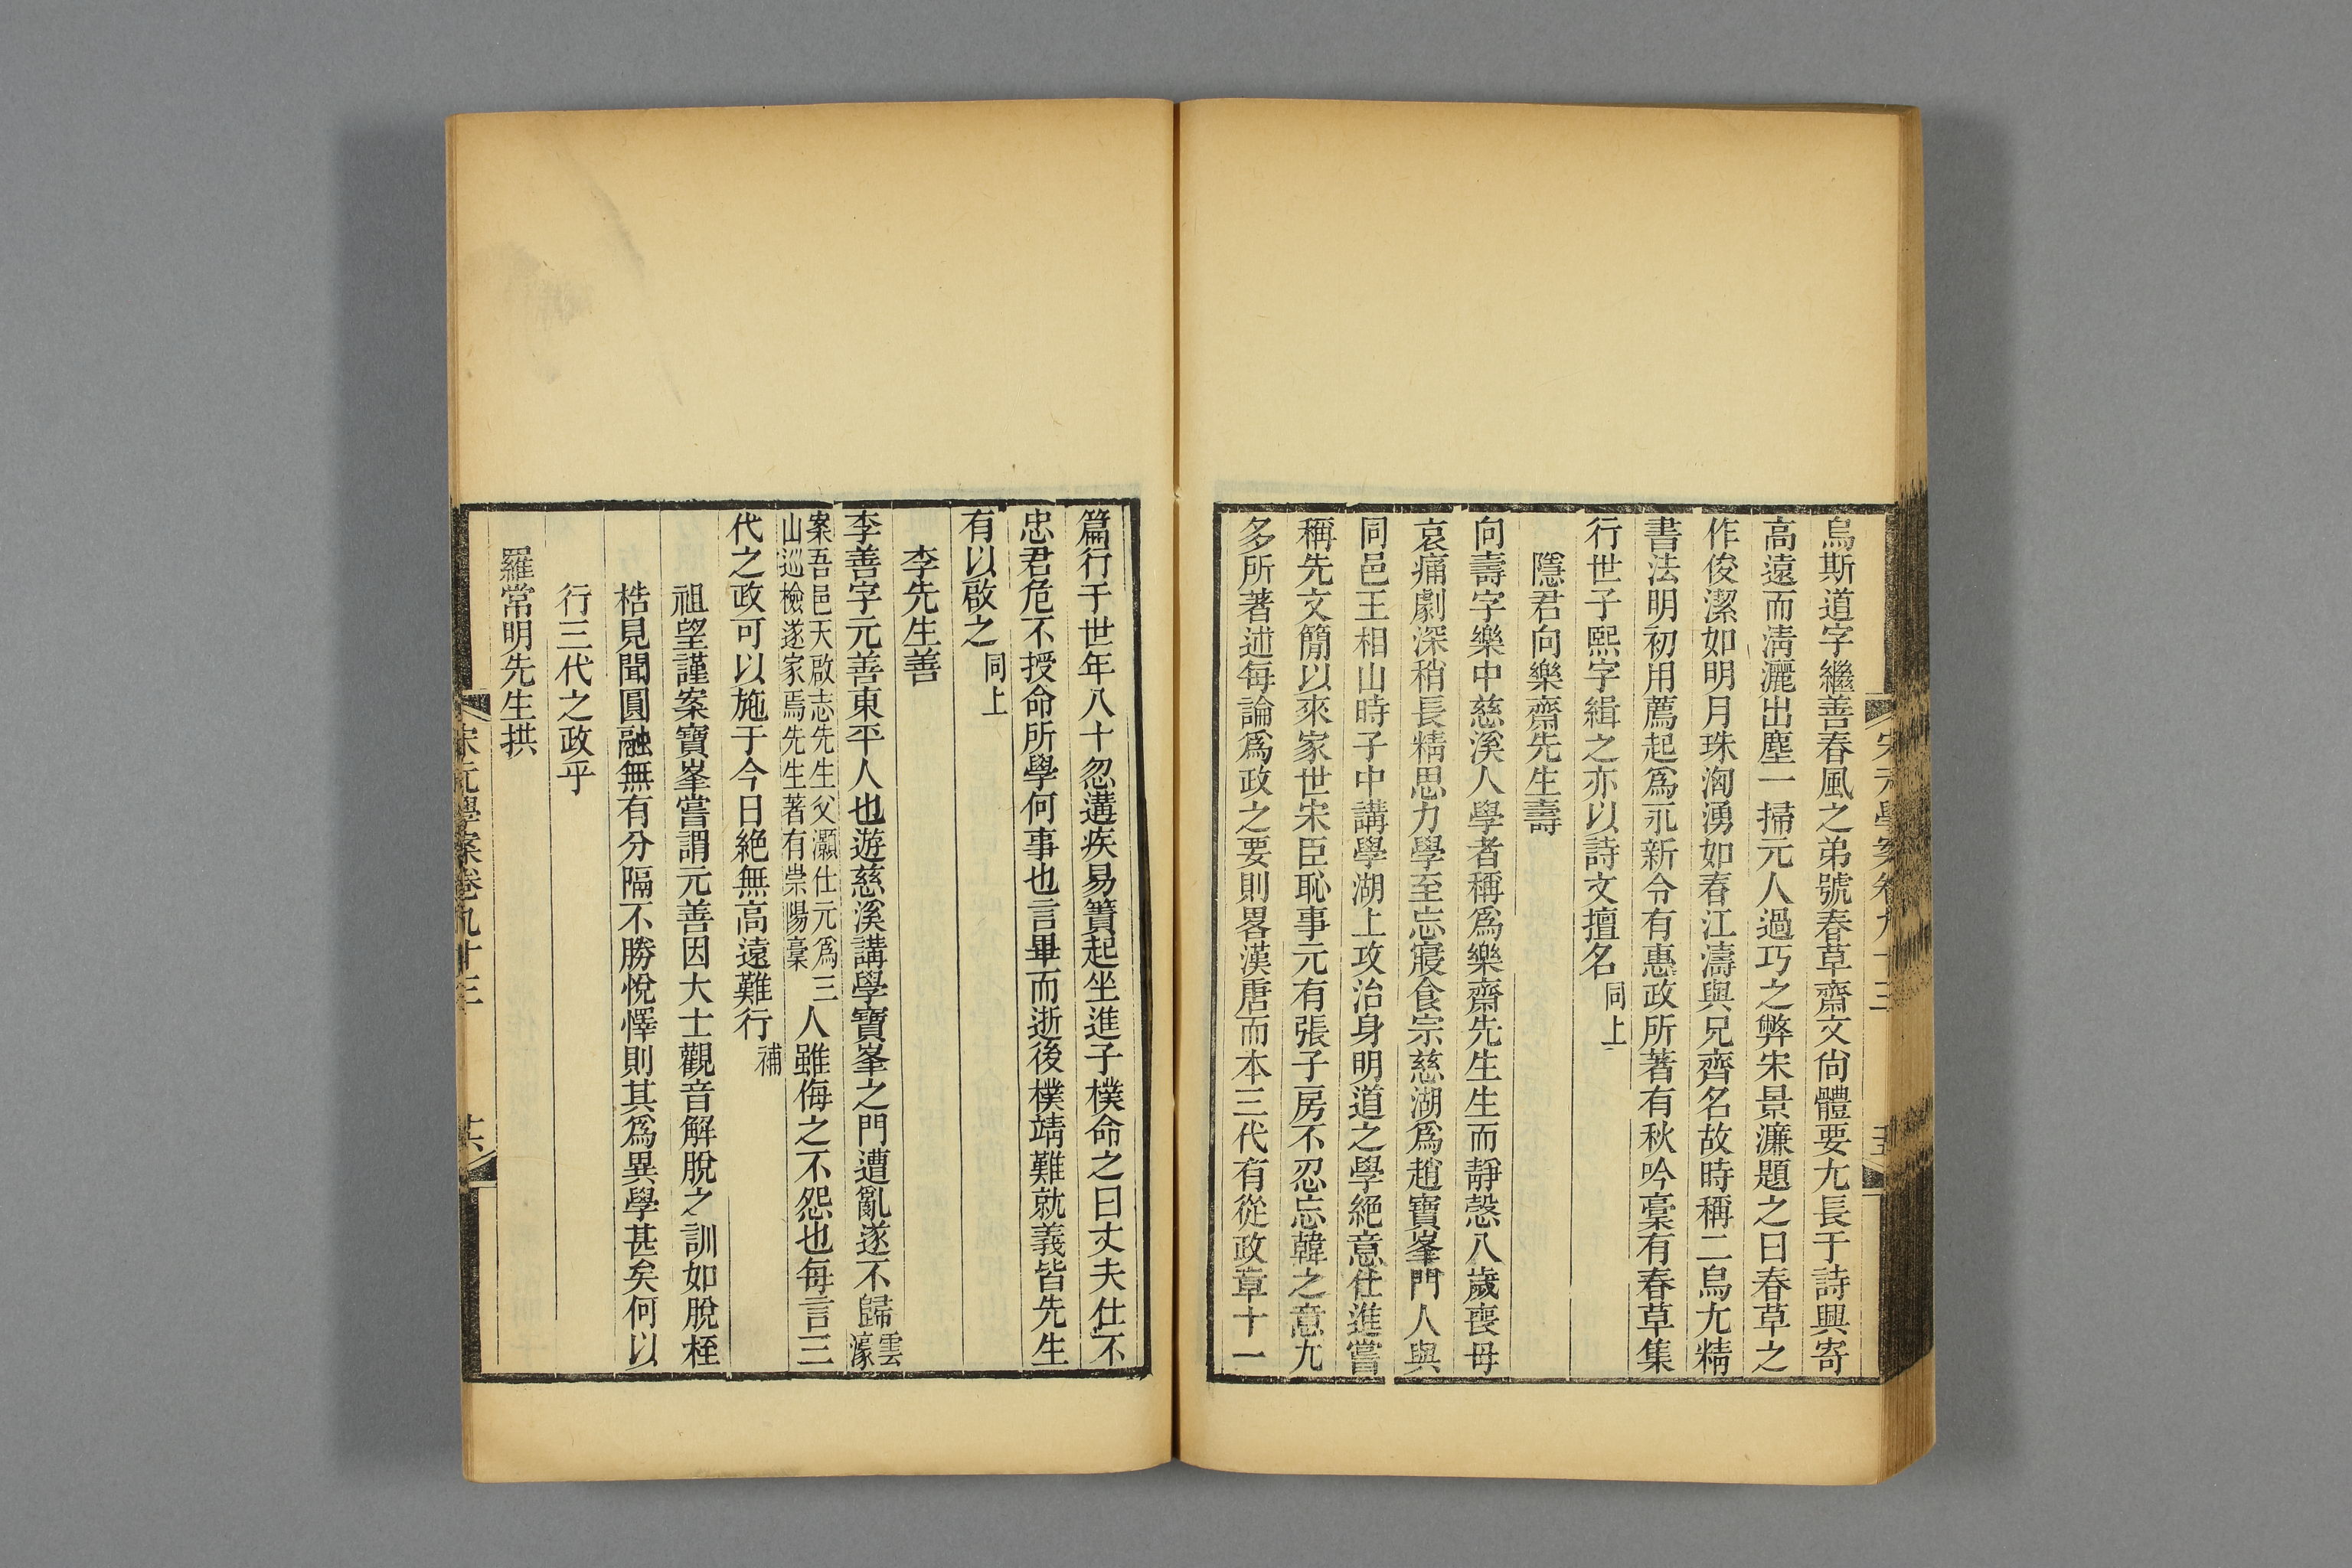 烏斯道字繼善春風之弟號春草齋文尙體要尢長于詩興寄
高遠而淸灑出塵一掃元人過巧之弊宋景濂題之曰春草之
作俊潔如明月珠洶湧如春江濤與兄齊名故時稱二烏尢精
書法明初用薦起爲永新令有惠政所著有秋吟稾有春草集
行世子熙字緝之亦以詩文擅名同上
隱君向樂齋先生壽
向壽字樂中慈溪人學者稱爲樂齋先生生而靜慤八歲喪母
哀痛劇深稍長精思力學至忘寢食宗慈湖爲趙寶峯門人與
同邑王相山時子中講學湖上攻治身明道之學絕意仕進嘗
稱先文簡以來家世宋臣恥事元有張子房不忍忘韓之意尢
多所著述每論爲政之要則畧漢唐而本三代有從政章十一
宋元學案卷九十三
篇行于世年八十忽遘疾易簀起坐進子樸命之曰丈夫仕不
忠君危不授命所學何事也言畢而逝後樸靖難就義皆先生
有以啟之同上
李先生善
李善字元善東平人也遊慈溪講學寶峯之門遭亂遂不歸雲濠
案吾邑天啟志先生父灝仕元爲
山巡檢遂家焉先生著有崇陽稾
三人雖侮之不怨也每言三
代之政可以施于今日絕無高遠難行補
祖望謹案寶峯嘗謂元善因大士觀音解脫之訓如脫桎
梏見聞圓融無有分隔不勝悅懌則其爲異學甚矣何以
行三代之政乎
羅常明先生拱
宋元學案卷九十三